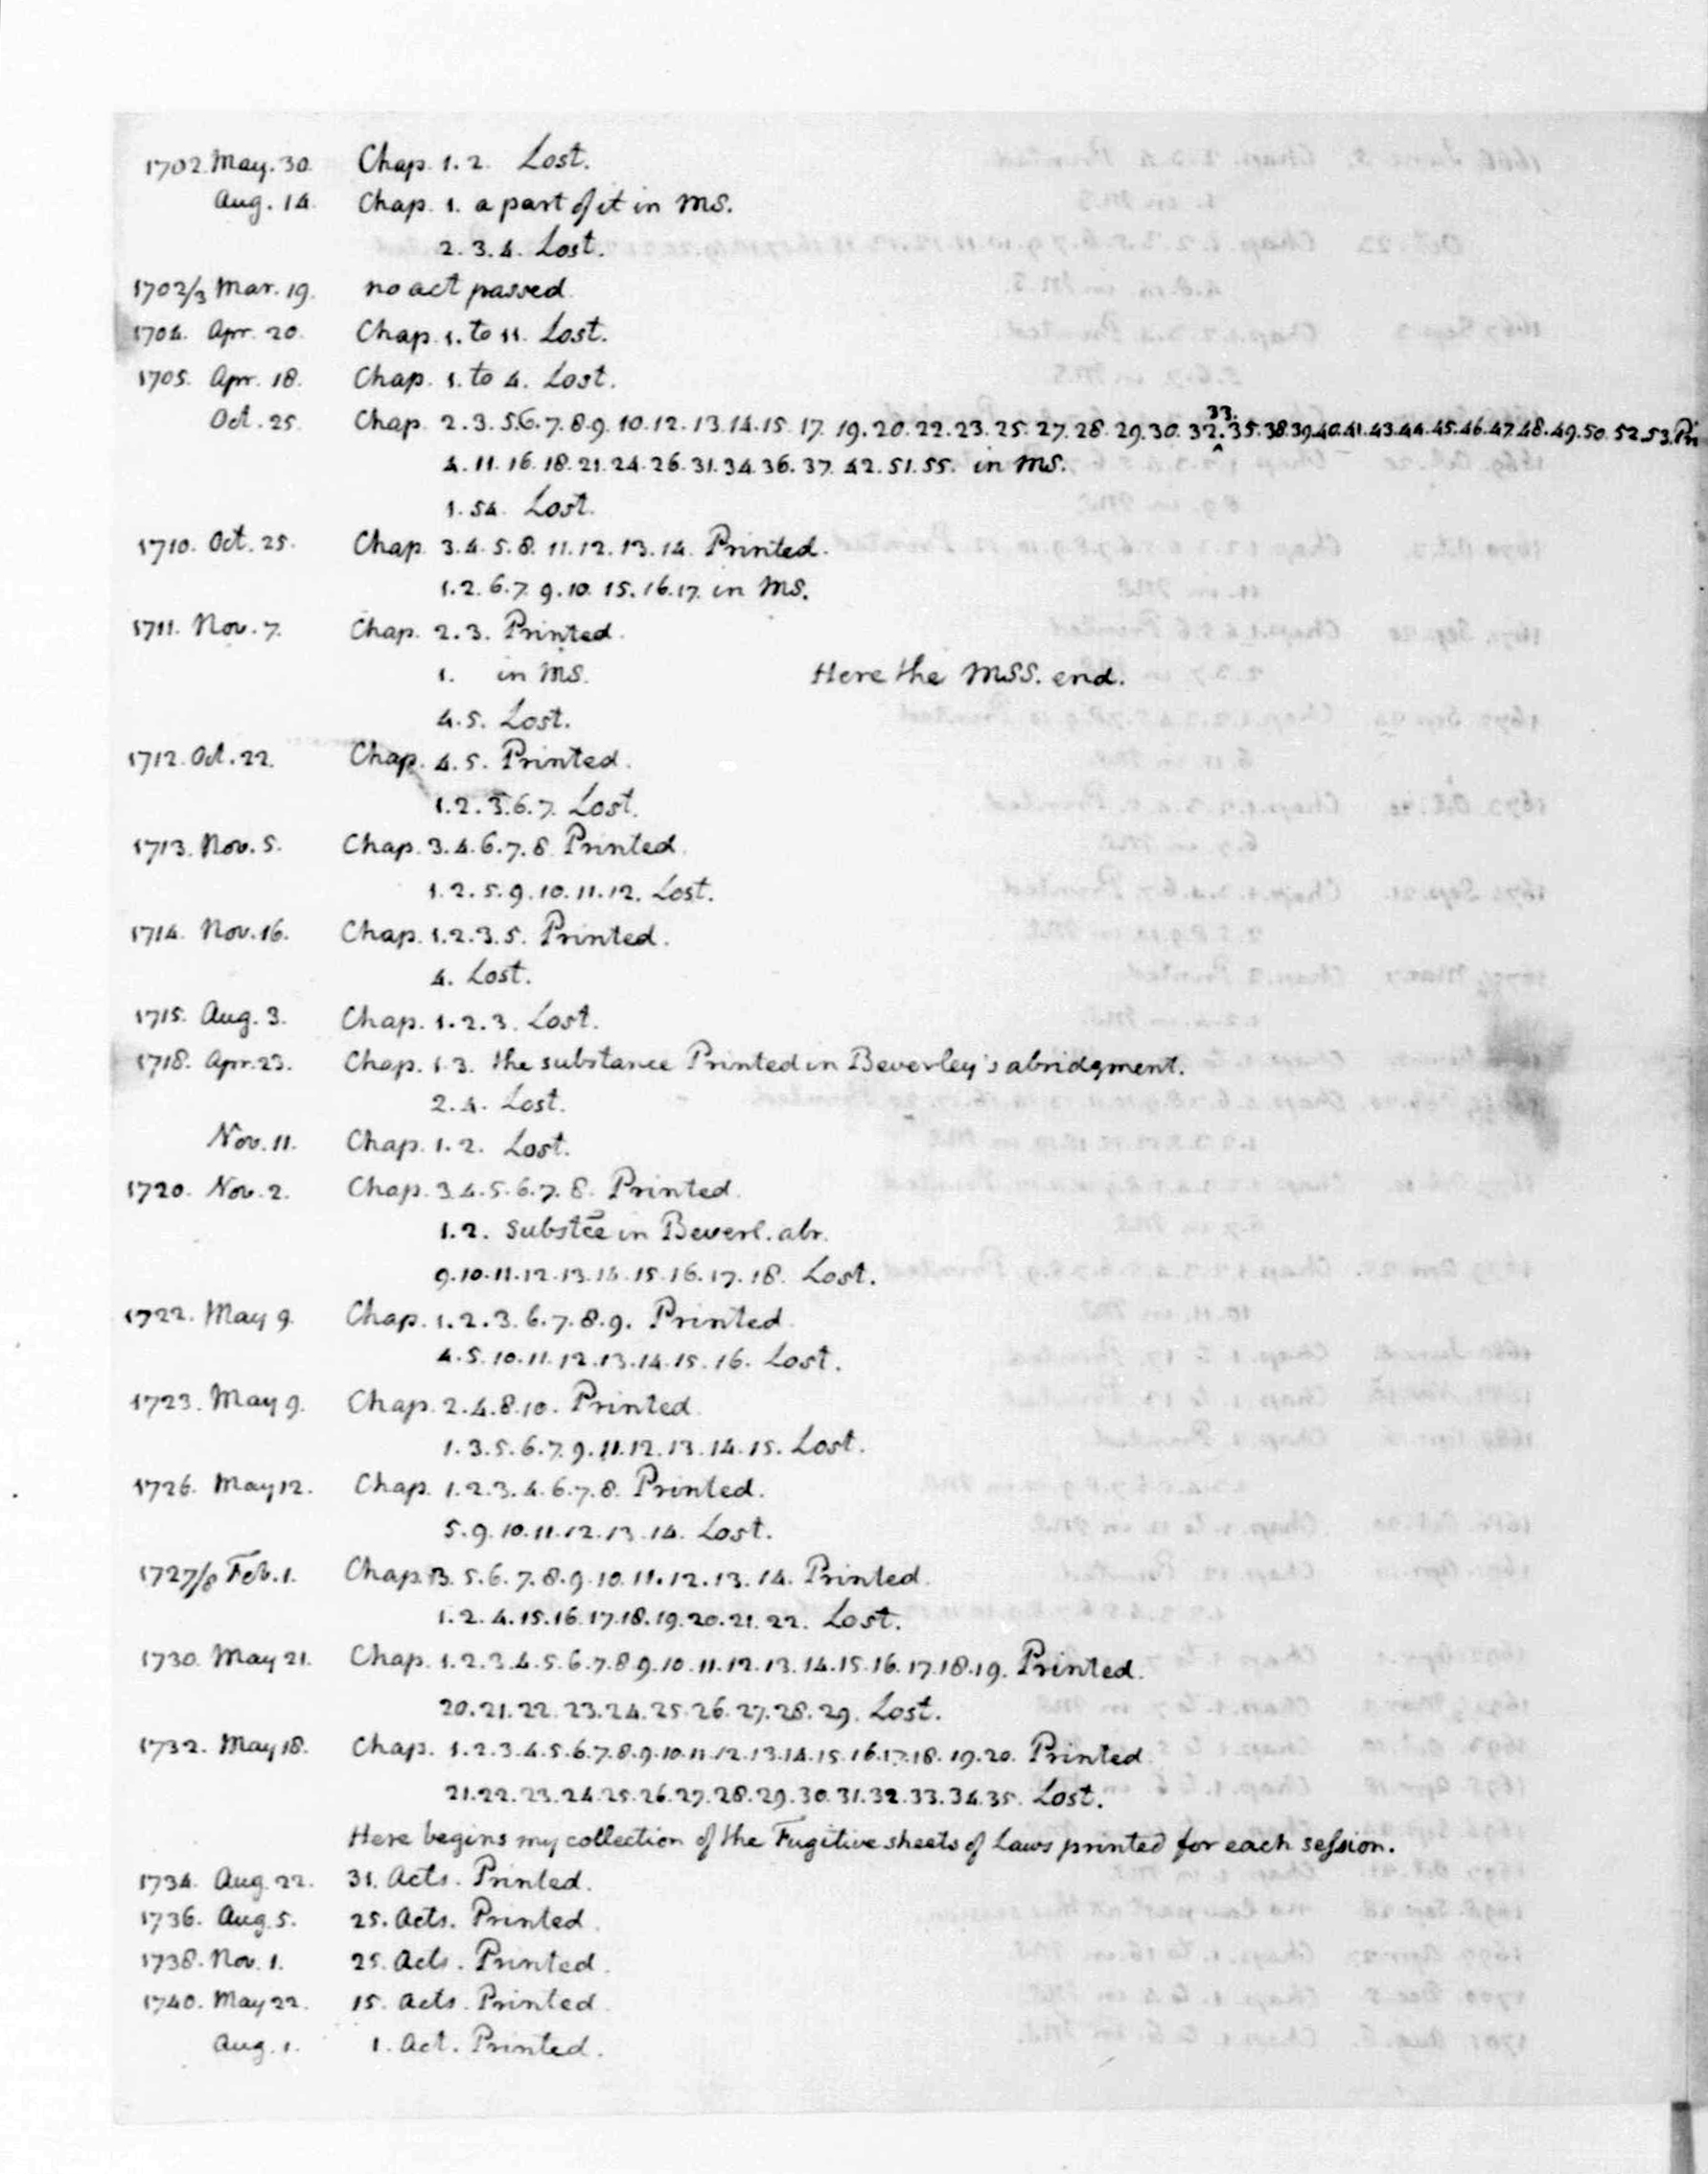 1702. May. 30. Chap. 1. 2. Lost.
Aug. 14. Chap. 1. a part of it in MS.
2. 3. 4. Lost.
1702/3 Mar. 19. no act passed.
1704. Apr. 20. Chap. 1. to 11. Lost.
1705. Apr. 18. Chap. 1. to 4. Lost.
33.
Oct. 25. Chap. 2. 3. 5. 6. 7. 8. 9. 10. 12. 13. 14. 15. 17. 19. 20. 22. 23. 25. 27. 28. 29. 30. 32. ^ 35. 38. 39. 40. 41. 43. 44. 45. 46. 47. 48. 49. 50. 52. 53. Pri
4. 11. 16. 18. 21. 24. 26. 31. 34. 36. 37. 42. 51. 55. in MS.
1. 54. Lost.
1710. Oct. 25. Chap. 3. 4. 5. 8. 11. 12. 13. 14. Printed.
1. 2. 6. 7. 9. 10. 15. 16. 17. in MS.
1711. Nov. 7. Chap. 2. 3. Printed.
1. in MS. Here the MSS. end.
4. 5. Lost.
1712. Oct. 22. Chap. 4. 5. Printed.
1. 2. 3. 6. 7. Lost.
1713. Nov. 5. Chap. 3. 4. 6. 7. 8. Printed.
1. 2. 5. 9. 10. 11. 12. Lost.
1714. Nov. 16. Chap. 1. 2. 3. 5. Printed.
4. Lost.
1715. Aug. 3. Chap. 1. 2. 3. Lost.
1718. Apr. 23. Chap. 1. 3. the substance Printed in Beverley's abridgment.
2. 4. Lost.
Nov. 11. Chap. 1. 2. Lost.
1720. Nov. 2. Chap. 3. 4. 5. 6. 7. 8. Printed.
1. 2. Substce in Beverl. abr.
9. 10. 11. 12. 13. 14. 15. 16. 17. 18. Lost.
1722. May 9. Chap. 1. 2. 3. 6. 7. 8. 9. Printed
4. 5. 10. 11. 12. 13. 14. 15. 16. Lost.
1723. May 9. Chap. 2. 4. 8. 10. Printed
1. 3. 5. 6. 7. 9. 11. 12. 13. 14. 15. Lost.
1726. May 12. Chap. 1. 2. 3. 4. 6. 7. 8. Printed.
5. 9. 10. 11. 12. 13. 14. Lost.
1727/8 Feb. 1. Chap. 3. 5. 6. 7. 8. 9. 10. 11. 12. 13. 14. Printed.
1. 2. 4. 15. 16. 17. 18. 19. 20. 21. 22. Lost.
1730. May 21. Chap. 1. 2. 3. 4. 5. 6. 7. 8. 9. 10. 11. 12. 13. 14. 15. 16. 17. 18. 19. Printed.
20. 21. 22. 23. 24. 25. 26. 27. 28. 29. Lost.
1732. May 18. Chap. 1. 2. 3. 4. 5. 6. 7. 8. 9. 10. 11. 12. 13. 14. 15. 16. 17. 18. 19. 20. Printed
21. 22. 23. 24. 25. 26. 27. 28. 29. 30. 31. 32. 33. 34. 35. Lost.
Here begins my collection of the Fugitive sheets of Laws printed for each session.
1734. Aug. 22. 31. Acts. Printed.
1736. Aug. 5. 25. Acts. Printed.
1738. Nov. 1. 25. Acts. Printed.
1740. May 22. 15. Acts. Printed.
Aug. 1. 1. Act. Printed.